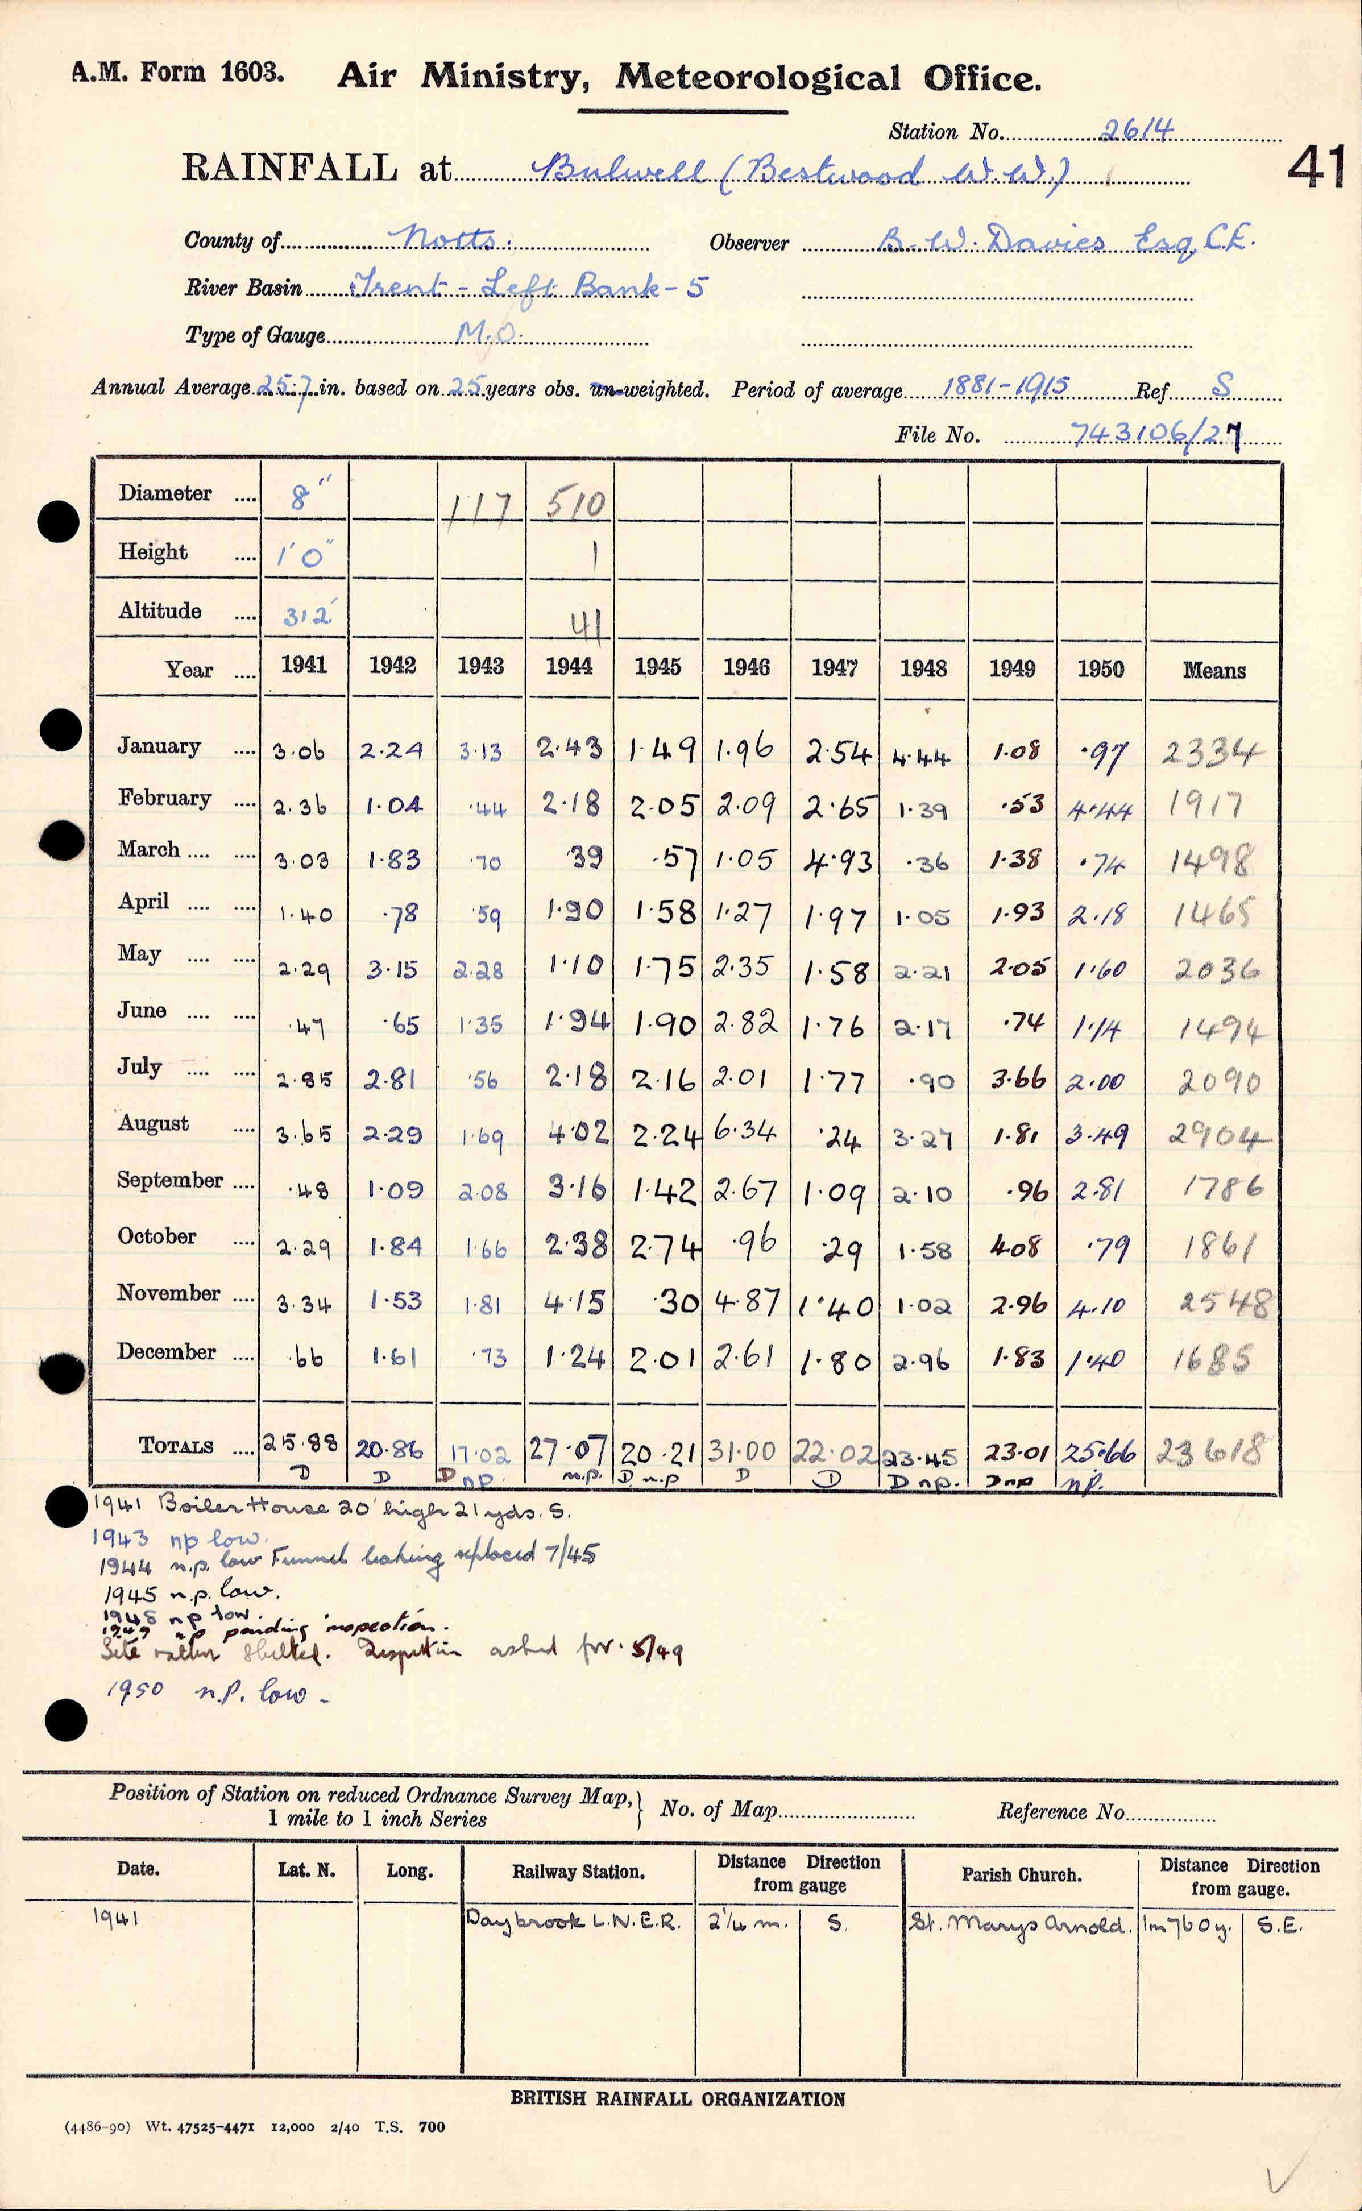 A.M. Form 1603. Air Ministry, Meteorological Office.
Station No. 2614
41
RAINFALL at Bulwell (Bestwood W.W.)
County of Notts. Observer B. W. Davies Esq, C.E.
River Basin Trent - Left Bank - 5
Type of Gauge M.O.
Annual Average 25.7 in. based on 25 years obs. un-weighted. Period of average 1881-1915 Ref S
File No. 743106/27
Diameter .... 8" 117 510
Height .... 1'0" 1
Altitude .... 312' 41
Year .... 1941 1942 1943 1944 1945 1946 1947 1948 1949 1950 Means
January .... 3.06 2.24 3.13 2.43 1.49 1.96 2.54 4.44 1.08 .97 2334
February .... 2.36 1.04 .44 2.18 2.05 2.09 2.65 1.39 .53 4.44 1917
March .... .... 3.03 1.83 .70 .39 .57 1.05 4.93 .36 1.38 .74 1498
April .... .... 1.40 .78 .59 1.90 1.58 1.27 1.97 1.05 1.93 2.18 1465
May .... .... 2.29 3.15 2.28 1.10 1.75 2.35 1.58 2.21 2.05 1.60 2036
June .... .... .47 .65 1.35 1.94 1.90 2.82 1.76 2.17 .74 1.14 1494
July .... .... 2.85 2.81 .56 2.18 2.16 2.01 1.77 .90 3.66 2.00 2090
August .... 3.65 2.29 1.69 4.02 2.24 6.34 .24 3.27 1.81 3.49 2904
September .... .48 1.09 2.08 3.16 1.42 2.67 1.09 2.10 .96 2.81 1786
October .... 2.29 1.84 1.66 2.38 2.74 .96 .29 1.58 4.08 .79 1861
November .... 3.34 1.53 1.81 4.15 .30 4.87 1.40 1.02 2.96 4.10 2548
December .... .66 1.61 .73 1.24 2.01 2.61 1.80 2.96 1.83 1.40 1685
TOTALS .... 25.88 20.86 17.02 27.07 20.21 31.00 22.02 23.45 23.01 25.66 23618
D D D np. n.p. D n.p D D D np. D np np.
1941 Boiler House 20' high 21 yds. S.
1943 np low.
1944 n.p. low Funnel leaking replaced 7/45
1945 n.p. low.
1948 np low.
1949 np pending inspection.
Site rather shelted. Inspection asked for. 5/49
1950 n.p. low -
Position of Station on reduced Ordnance Survey Map, 1 mile to 1 inch Series } No. of Map Reference No.
Date. Lat. N. Long. Railway Station. Distance Direction from gauge Parish Church. Distance Direction from gauge.
1941 Daybrook L.N.E.R. 2¼ m. S. St. Marys Arnold. 1m 760y. S.E.
BRITISH RAINFALL ORGANIZATION
(4486-90) Wt. 47525-4471 12,000 2/40 T.S. 700